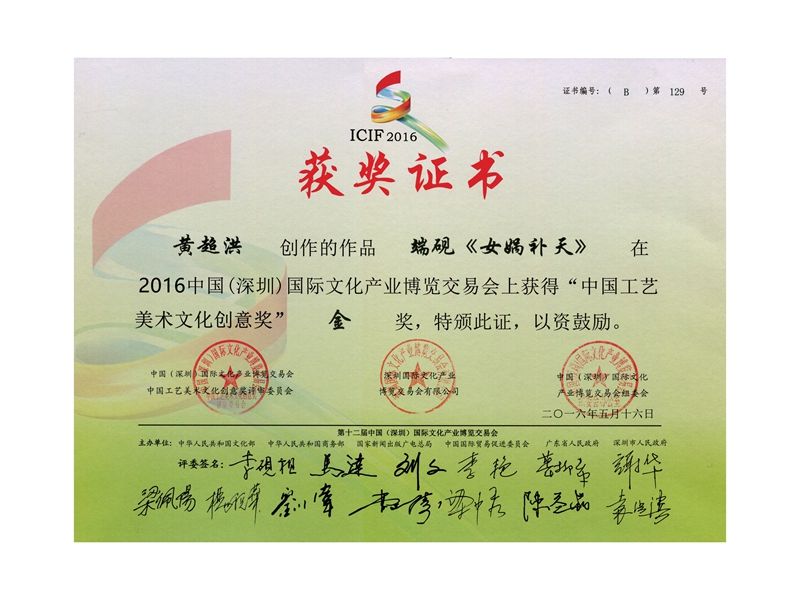 证书编号：（ B ）第 129 号
ICIF 2016
获奖证书
黄超洪 创作的作品 端砚《女娲补天》 在
2016中国(深圳)国际文化产业博览交易会上获得“中国工艺
美术文化创意奖” 金 奖，特颁此证，以资鼓励。
中国（深圳）国际文化产业博览交易会
中国工艺美术文化创意奖评审委员会
深圳国际文化产业
博览交易会有限公司
中国（深圳）国际文化
产业博览交易会组委会
二〇一六年五月十六日
第十二届中国（深圳）国际文化产业博览交易会
主办单位：中华人民共和国文化部 中华人民共和国商务部 国家新闻出版广电总局 中国国际贸易促进委员会 广东省人民政府 深圳市人民政府
评委签名：李砚祖 马达 刘文 李艳
梁佩阳 刘小伟 梁中秀